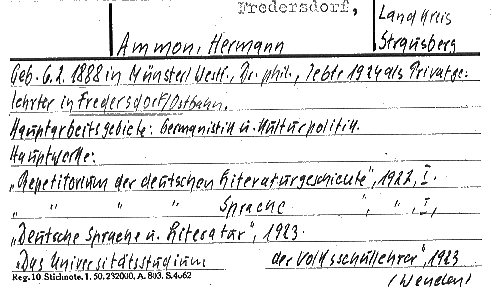 Fredersdorf,
Landkreis
Strausberg
Ammon, Hermann
Geb. 6.2. 1888 in Münster/Westf., Dr. phil., lebte 1924 als Privatge-
lehrter in Fredersdorf/Ostbahn.
Hauptarbeitsgebiete: Germanistik u. Kulturpolitik.
Hauptwerke:
„Repetitorium der deutschen Literaturgeschichte", 1922, I.
„ " " " Sprache " , " , I,
„Deutsche Sprache u. Literatur", 1923.
„Das Universitätsstudium der Volksschullehrer", 1923
Reg. 10 Stichnote. 1. 50. 232000. A. 803. S. 4062
(Wenden)